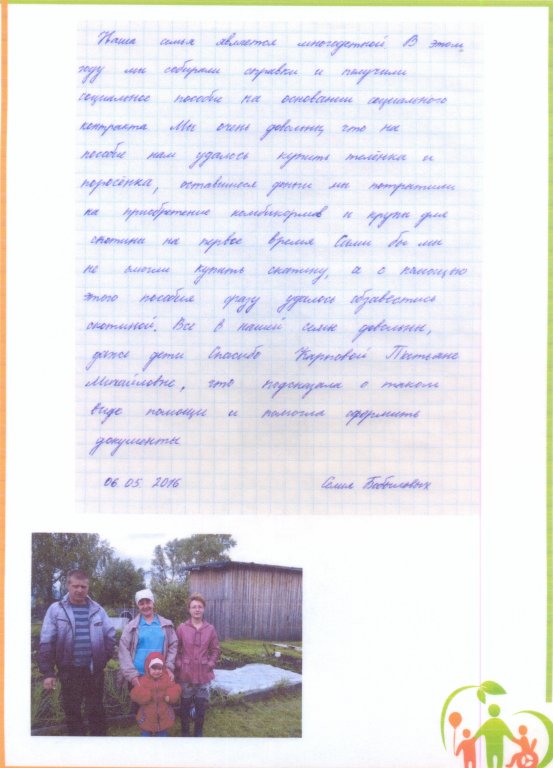 Наша семья является многодетной В этом
году мы собирали справки и получили
социальное пособие на основании социального
контракта Мы очень довольны, что на
пособие нам удалось купить телёнка и
поросёнка, оставшиеся деньги мы потратили
на приобретение комбикормов и крупы для
скотины на первое время Сами бы мы
не смогли купить скотину, а с помощью
этого пособия сразу удалось обзавестись
скотиной. Все в нашей семье довольны,
даже дети Спасибо Карповой Татьяне
Михайловне, что подсказала о таком
виде помощи и помогла оформить
документы
06 05 2016 Семья Бобылевых